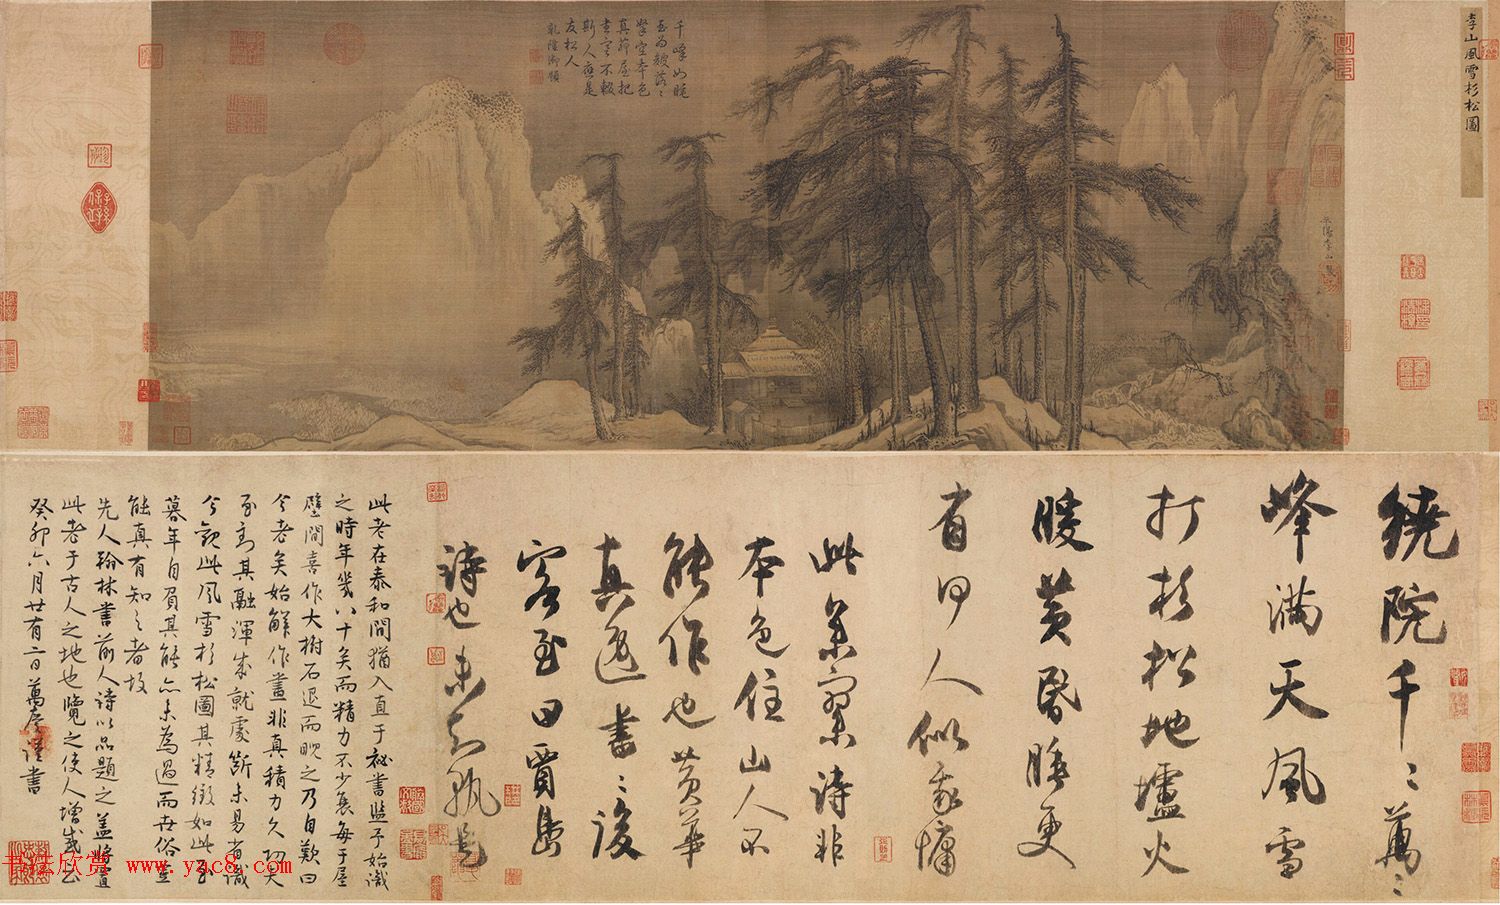 李山風雪杉松圖
千峰如睡
玉為皴落〻
拏空本色
真茆屋把
書寒不輟
斯人應是
友松人
乾隆御題
平陽李山製
繞院千〻萬〻
峰滿天風雪
打杉松地壚火
暖黃昏睡更
有何人似我慵
此參寥詩非
本色住山人不
能作也黃華
真逸書〻後
客至曰賈島
詩也未知孰是
此老在泰和間猶入直于祕書監予始識
之時年幾八十矣而精力不少衰每于屋
壁間喜作大樹石退而睨之乃自歎曰
今老矣始解作畫非真積力久功夫
至到其融渾成就處斷未易省識
今觀此風雪杉松圖其精緻如此至
暮年自負其能亦未為過而世俗豈
能真有知之者故
先人翰林書前人詩以品題之蓋將置
此老于古人之地也覽之使人增感云
癸卯六月廿有二日萬慶謹書
书法欣赏 www.yac8.com